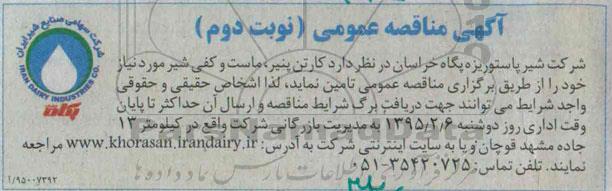 آگهی مناقصه عمومی (نوبت دوم)
شرکت سهامی صنایع شیر ایران
IRAN DAIRY INDUSTRIES CO.
پگاه
شرکت شیر پاستوریزه پگاه خراسان در نظر دارد کارتن پنیر، ماست و کفی شیر مورد نیاز
خود را از طریق برگزاری مناقصه عمومی تامین نماید، لذا اشخاص حقیقی و حقوقی
واجد شرایط می توانند جهت دریافت برگ شرایط مناقصه و ارسال آن حداکثر تا پایان
وقت اداری روز دوشنبه ۱۳۹۵/۲/۶ به مدیریت بازرگانی شرکت واقع در کیلومتر ۱۳
جاده مشهد قوچان و یا به سایت اینترنتی شرکت به آدرس: www.khorasan.irandairy.ir مراجعه
نمایند. تلفن تماس: ۳۵۴۲۰۷۲۵-۰۵۱
۱/۹۵۰۰۷۳۹۲